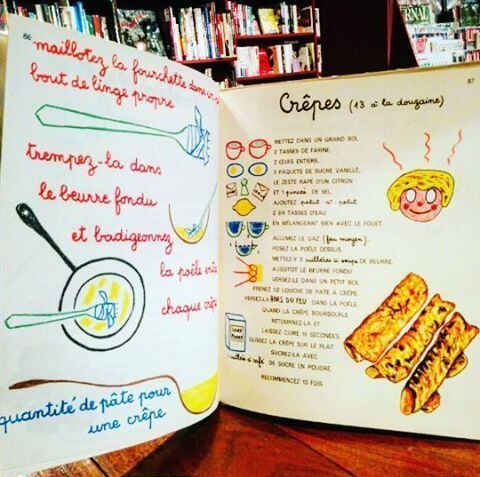 86
maillotez la fourchette dans un
bout de linge propre
trempez-la dans
le beurre fondu
et badigeonnez
la poêle entre
chaque crêpe
quantité de pâte pour
une crêpe
87
Crêpes (13 à la douzaine)
METTEZ DANS UN GRAND BOL
2 TASSES DE FARINE,
2 ŒUFS ENTIERS,
2 PAQUETS DE SUCRE VANILLÉ,
LE ZESTE RAPÉ D'UN CITRON
ET 1 pincée DE SEL.
AJOUTEZ petit-à-petit
2 3/4 TASSES D'EAU
EN MÉLANGEANT BIEN AVEC LE FOUET.
ALLUMEZ LE GAZ (feu moyen).
POSEZ LA POÊLE DESSUS.
METTEZ-Y 3 cuillerées à soupe DE BEURRE.
AUSSITOT LE BEURRE FONDU
VERSEZ-LE DANS UN PETIT BOL.
PRENEZ 1/2 LOUCHE DE PATE A CRÊPE.
VERSEZ-LA HORS DU FEU DANS LA POÊLE.
QUAND LA CRÊPE BOURSOUFLE,
RETOURNEZ-LA ET
LAISSEZ CUIRE 15 SECONDES.
GLISSEZ LA CRÊPE SUR LE PLAT.
SUCREZ-LA AVEC
1 cuillerée à café DE SUCRE EN POUDRE.
RECOMMENCEZ 13 FOIS.